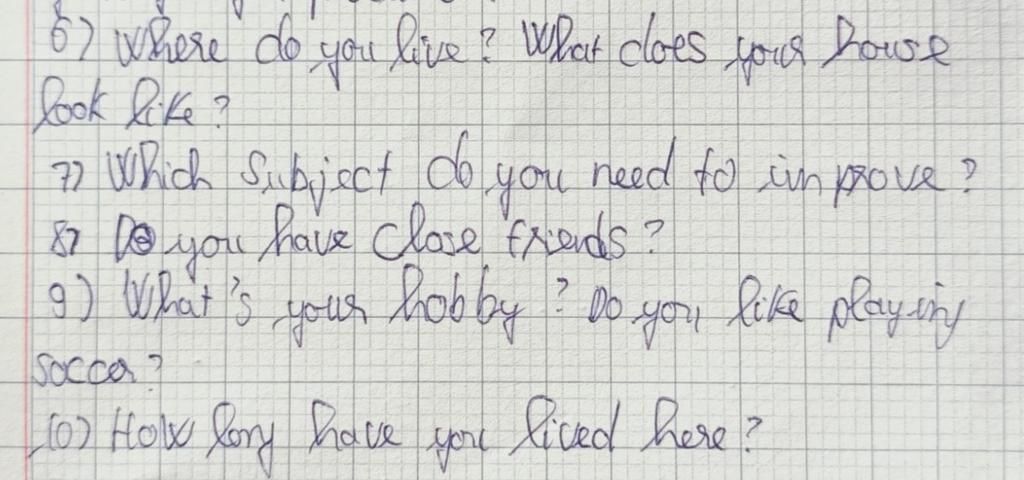 6) Where do you live? What does your house
look like?
7) Which subject do you need to improve?
8) Do you have close friends?
9) What's your hobby? Do you like playing
soccer?
10) How long have you lived here?